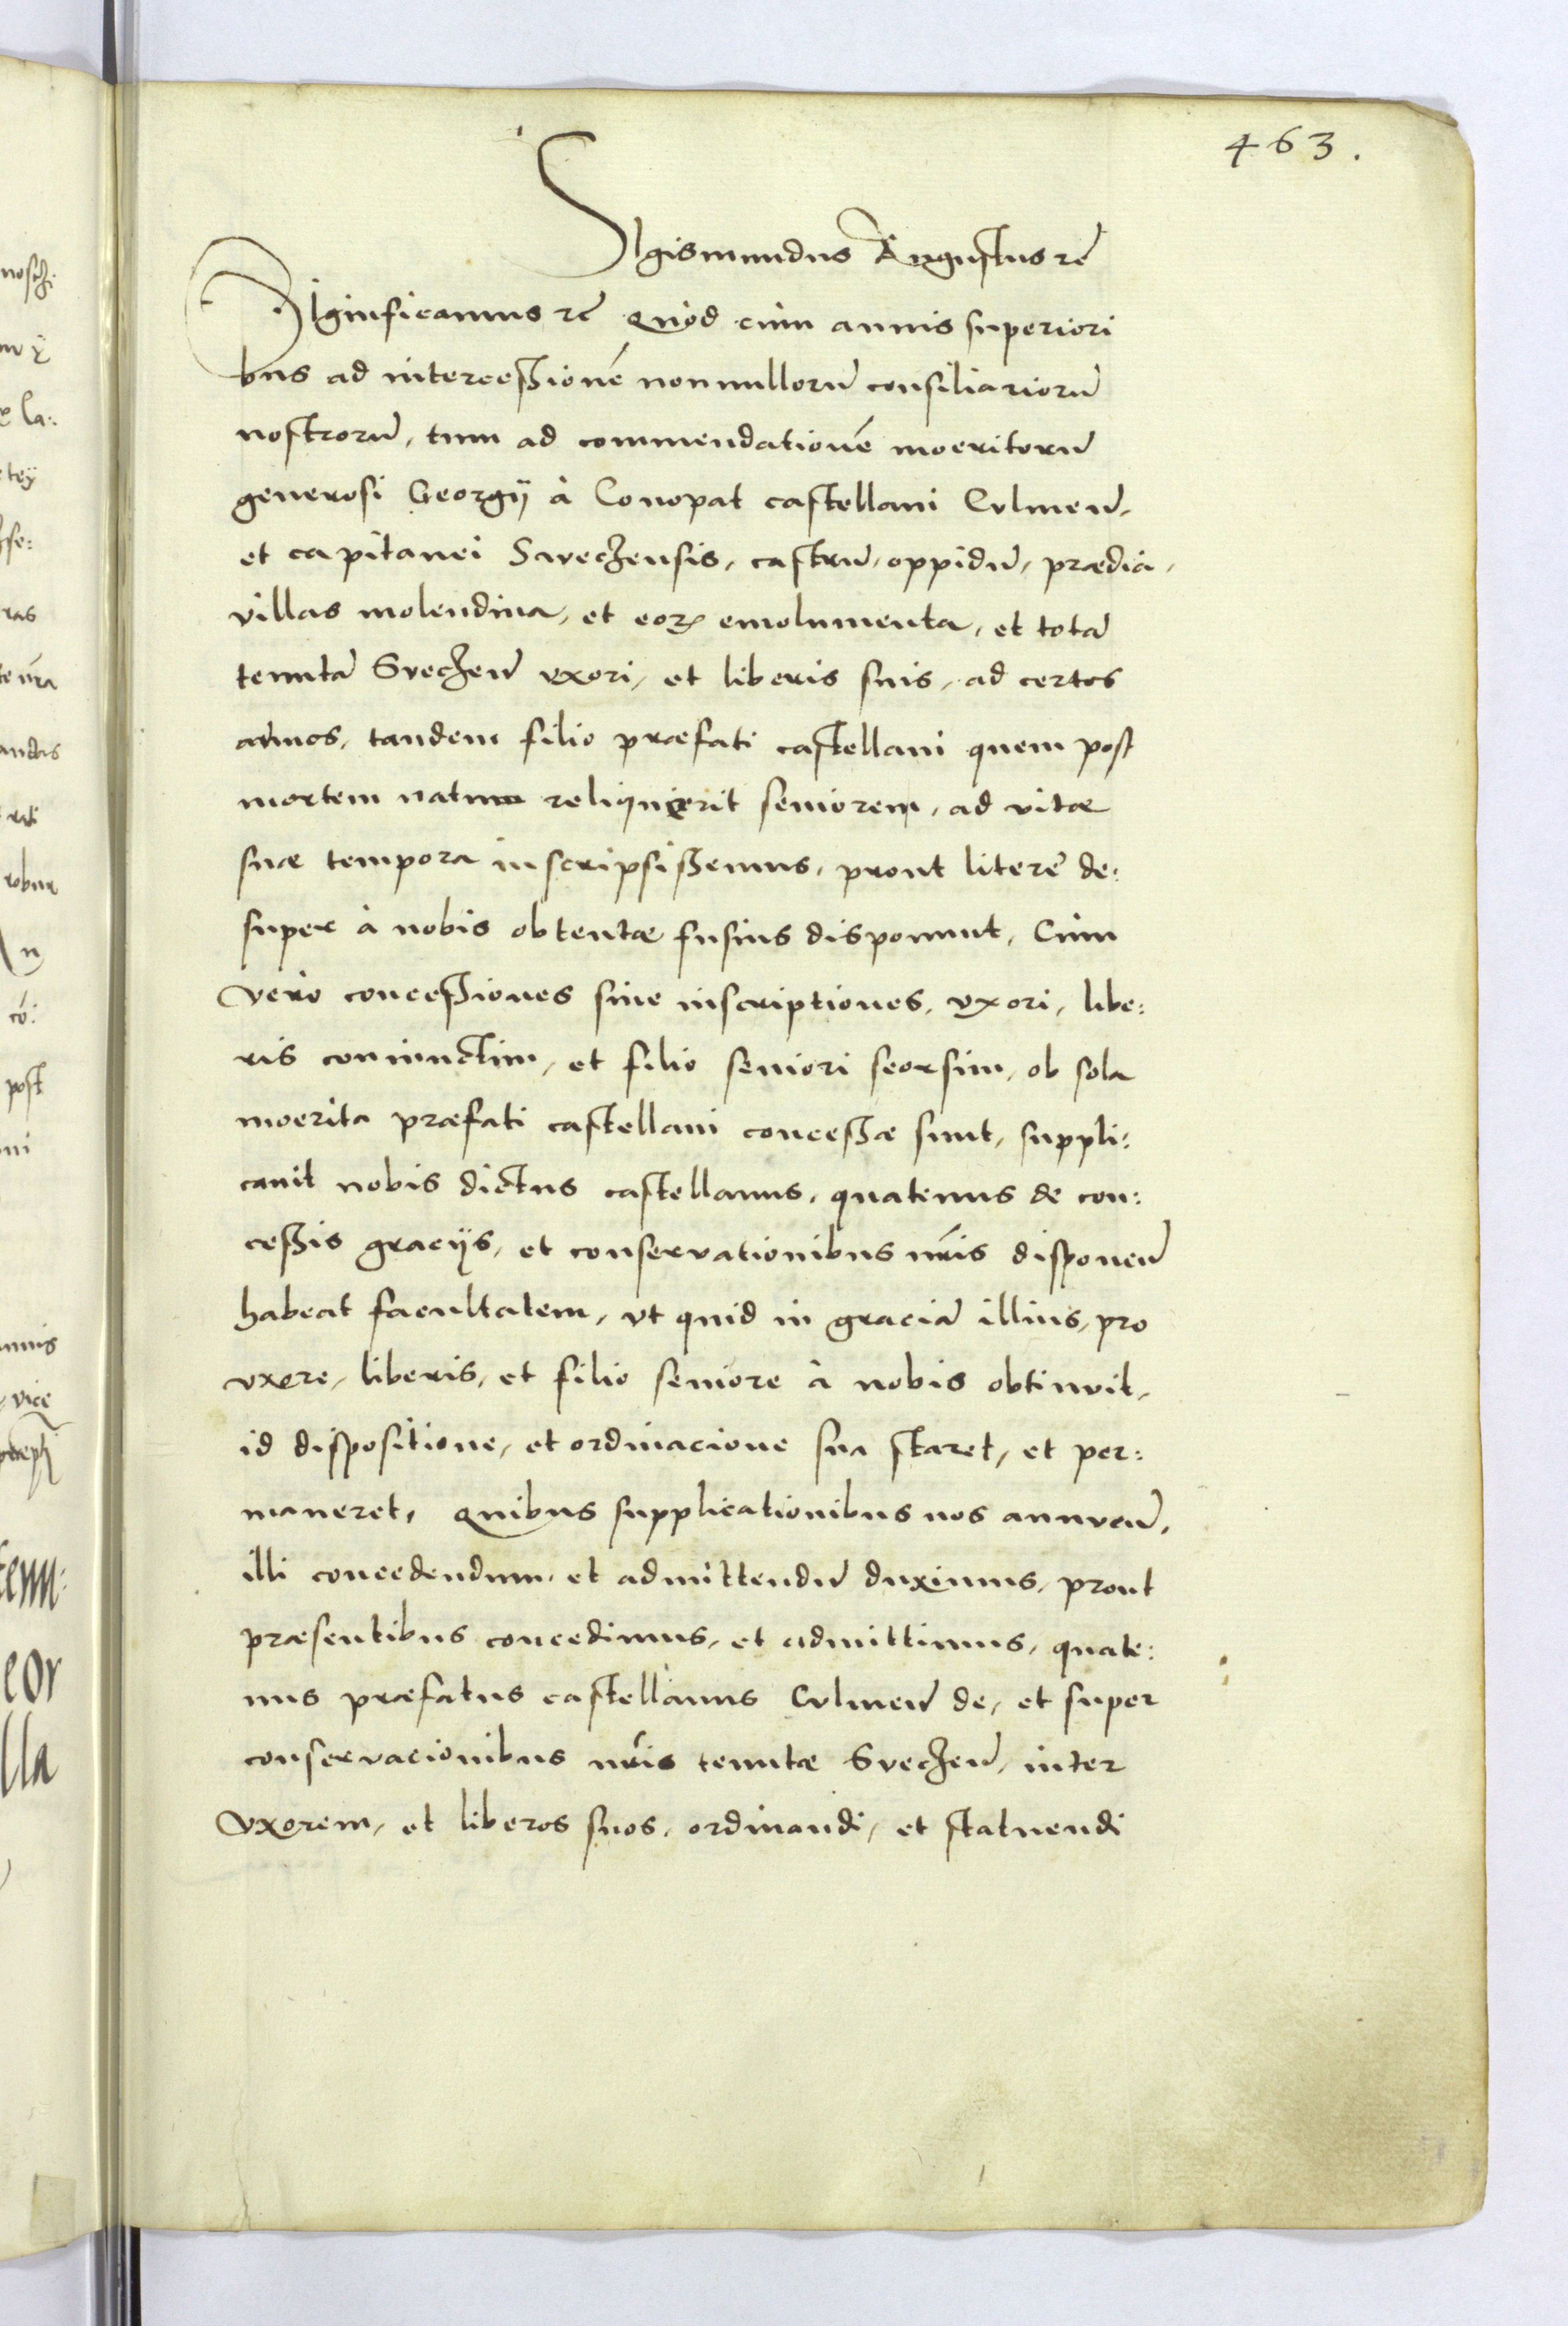 463.
SIgismundus Augustus rc̃
SIgnificamus rc̃ Quòd cùm annis superiori
bus ad intercessionẽ nonnullorũ consiliariorũ
nostrorũ, tum ad commendationẽ moeritorũ
generosi Georgij à Conopat castellani Culmeñ,
et capitanei Swechensis, castrũ, oppidũ, prædia,
villas molendina, et eoꝝ emolumenta, et totã
tenutã Svecheñ uxori, et liberis suis, ad certos
annos, tandem filio præfati castellani quem post
mortem natum reliquerit seniorem, ad vitæ
suæ tempora inscripsissemus, prout literę de:
super à nobis obtentæ fusius disponunt, Cùm
verò concessiones sive inscriptiones, uxori, libe:
ris coniunctim, et filio seniori seorsim, ob sola
moerita præfati castellani concessæ sunt, suppli:
cavit nobis dictus castellanus, quatenus de con:
cessis gracijs, et conservationibus nr̃is disponeñ
habeat facultatem, ut quid in graciã illius, pro
uxore, liberis, et filio seniore à nobis obtinuit,
id dispositione, et ordinacione sua staret, et per:
maneret, Quibus supplicationibus nos annueñ,
illi concedendum, et admittendũ duximus, prout
præsentibus concedimus, et admittimus, quate:
nus præfatus castellanus Culmeñ de, et super
conservacionibus nr̃is tenutæ Svecheñ, inter
Uxorem, et liberos suos, ordinandi, et statuendi